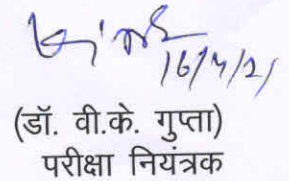 16/4/21
(डॉ. वी.के. गुप्ता)
परीक्षा नियंत्रक